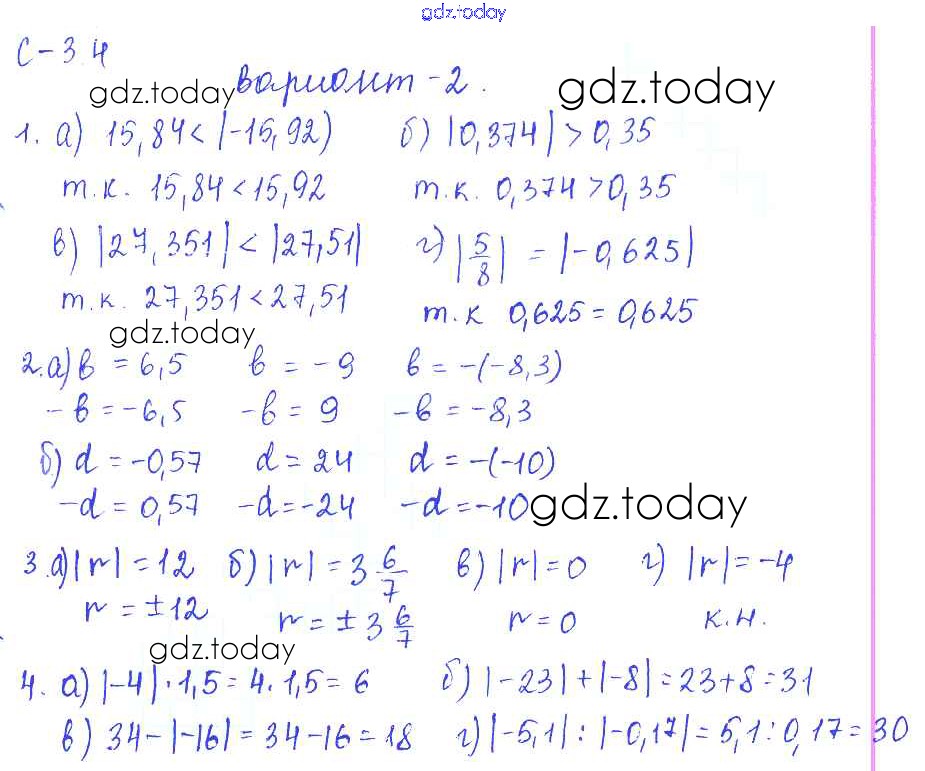 gdz.today
С-3.4
gdz.today вариант-2. gdz.today
1. а) 15,84 < |-15,92) б) |0,374| > 0,35
т.к. 15,84 < 15,92 т.к. 0,374 > 0,35
в) |27,351| < |27,51| г) |5/8| = |-0,625|
т.к. 27,351 < 27,51 т.к 0,625 = 0,625
gdz.today
2.а) в = 6,5 в = -9 в = -(-8,3)
-в = -6,5 -в = 9 -в = -8,3
б) d = -0,57 d = 24 d = -(-10)
-d = 0,57 -d = -24 -d = -10 gdz.today
3.а) |r| = 12 б) |r| = 3 6/7 в) |r| = 0 г) |r| = -4
r = ±12 r = ± 3 6/7 r = 0 к.н.
gdz.today
4. а) |-4| · 1,5 = 4 · 1,5 = 6 б) |-23| + |-8| = 23 + 8 = 31
в) 34 - |-16| = 34 - 16 = 18 г) |-5,1| : |-0,17| = 5,1 : 0,17 = 30